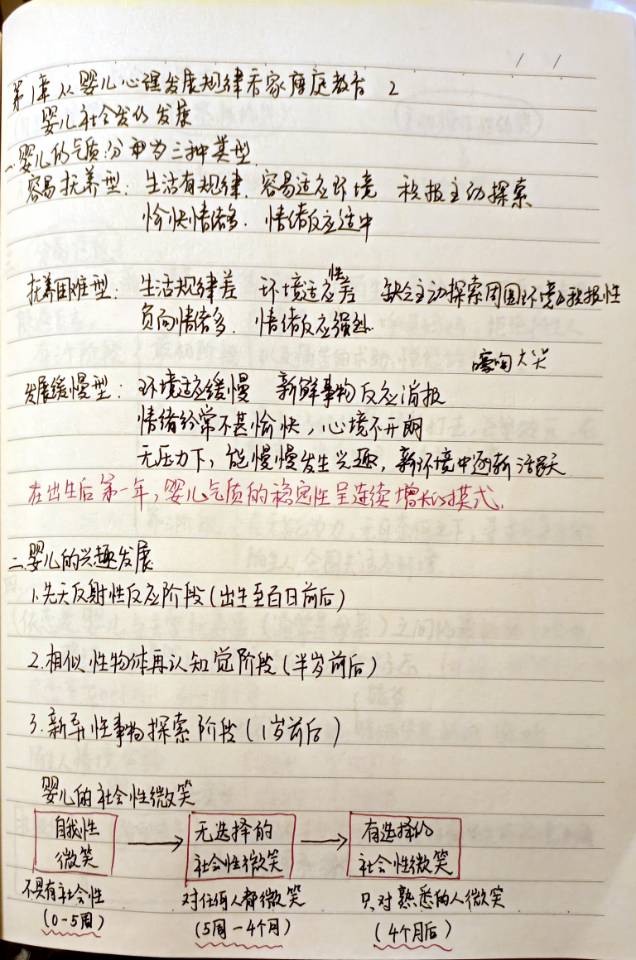 第1章从婴儿心理发展规律看家庭教育 2
婴儿社会性的发展
一.婴儿的气质:分为三种类型.
容易抚养型: 生活有规律. 容易适应环境 积极主动探索
愉快情绪多. 情绪反应适中
抚养困难型: 生活规律差 环境适应性差 缺乏主动探索周围环境的积极性
负向情绪多. 情绪反应强烈.
嚎啕大哭
发展缓慢型: 环境适应缓慢 新鲜事物反应消极
情绪经常不甚愉快,心境不开朗
无压力下,能慢慢发生兴趣,新环境中逐渐活跃
在出生后第一年,婴儿气质的稳定性呈连续增长的模式.
二.婴儿的兴趣发展
1.先天反射性反应阶段(出生至百日前后)
2.相似性物体再认知觉阶段(半岁前后)
3.新异性事物探索阶段(1岁前后)
婴儿的社会性微笑
自我性微笑 → 无选择的社会性微笑 → 有选择的社会性微笑
不具有社会性 对任何人都微笑 只对熟悉的人微笑
(0-5周) (5周-4个月) (4个月后)